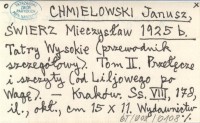 CHMIELOWSKI Janusz,
ŚWIERZ Mieczysław 1925 b.
Tatry Wysokie (przewodnik
szczegółowy). Tom II. Przełęcze
i szczyty (od Liljowego po
Wagę). — Kraków, SS. VIII, 178,
il., okł., cm 15 x 11. Wydawnictwo